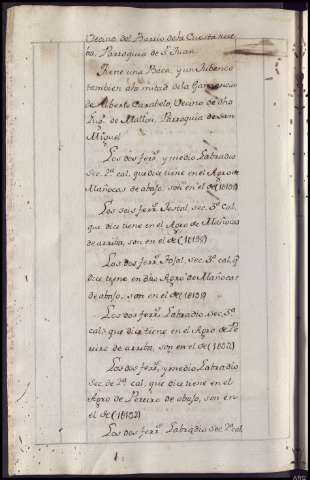 Vecino del Barrio de la Cuesta nue
ba, Parroquia de Sn. Juan
Tiene una Baca, y un Jubenco
tambien ala mitad de la Ganancia
de Alberto Carabelo, Vecino de dha
de Mallon, Parroquia de San
Miguel
Los dos ferrs. y medio Labradio
Sec. 2ª cal. que dice tiene en el Agro de
Mañocas de abajo, son en el de (1810)
Los seis ferrs. Tojal, sec. 3ª cal.
que dice tiene en el Agro de Mañocas
de arriba, son en el de (1815)
Los dos ferrs. Tojal, Sec. 3ª cal. q
dice tiene en dho Agro de Mañocas
de abajo, son en el de (1810)
Los dos ferrs. Labradio, sec. 3ª
cal. que dice tiene en el Agro de Pe
reiro de arriba, son en el de (1832)
Los dos ferrs. y medio Labradio
Sec. de 2ª cal. que dice tiene en el
Agro de Pereiro de abajo, son en
el de (1832)
Los dos ferrs. Labradio sec. 2ª cal.